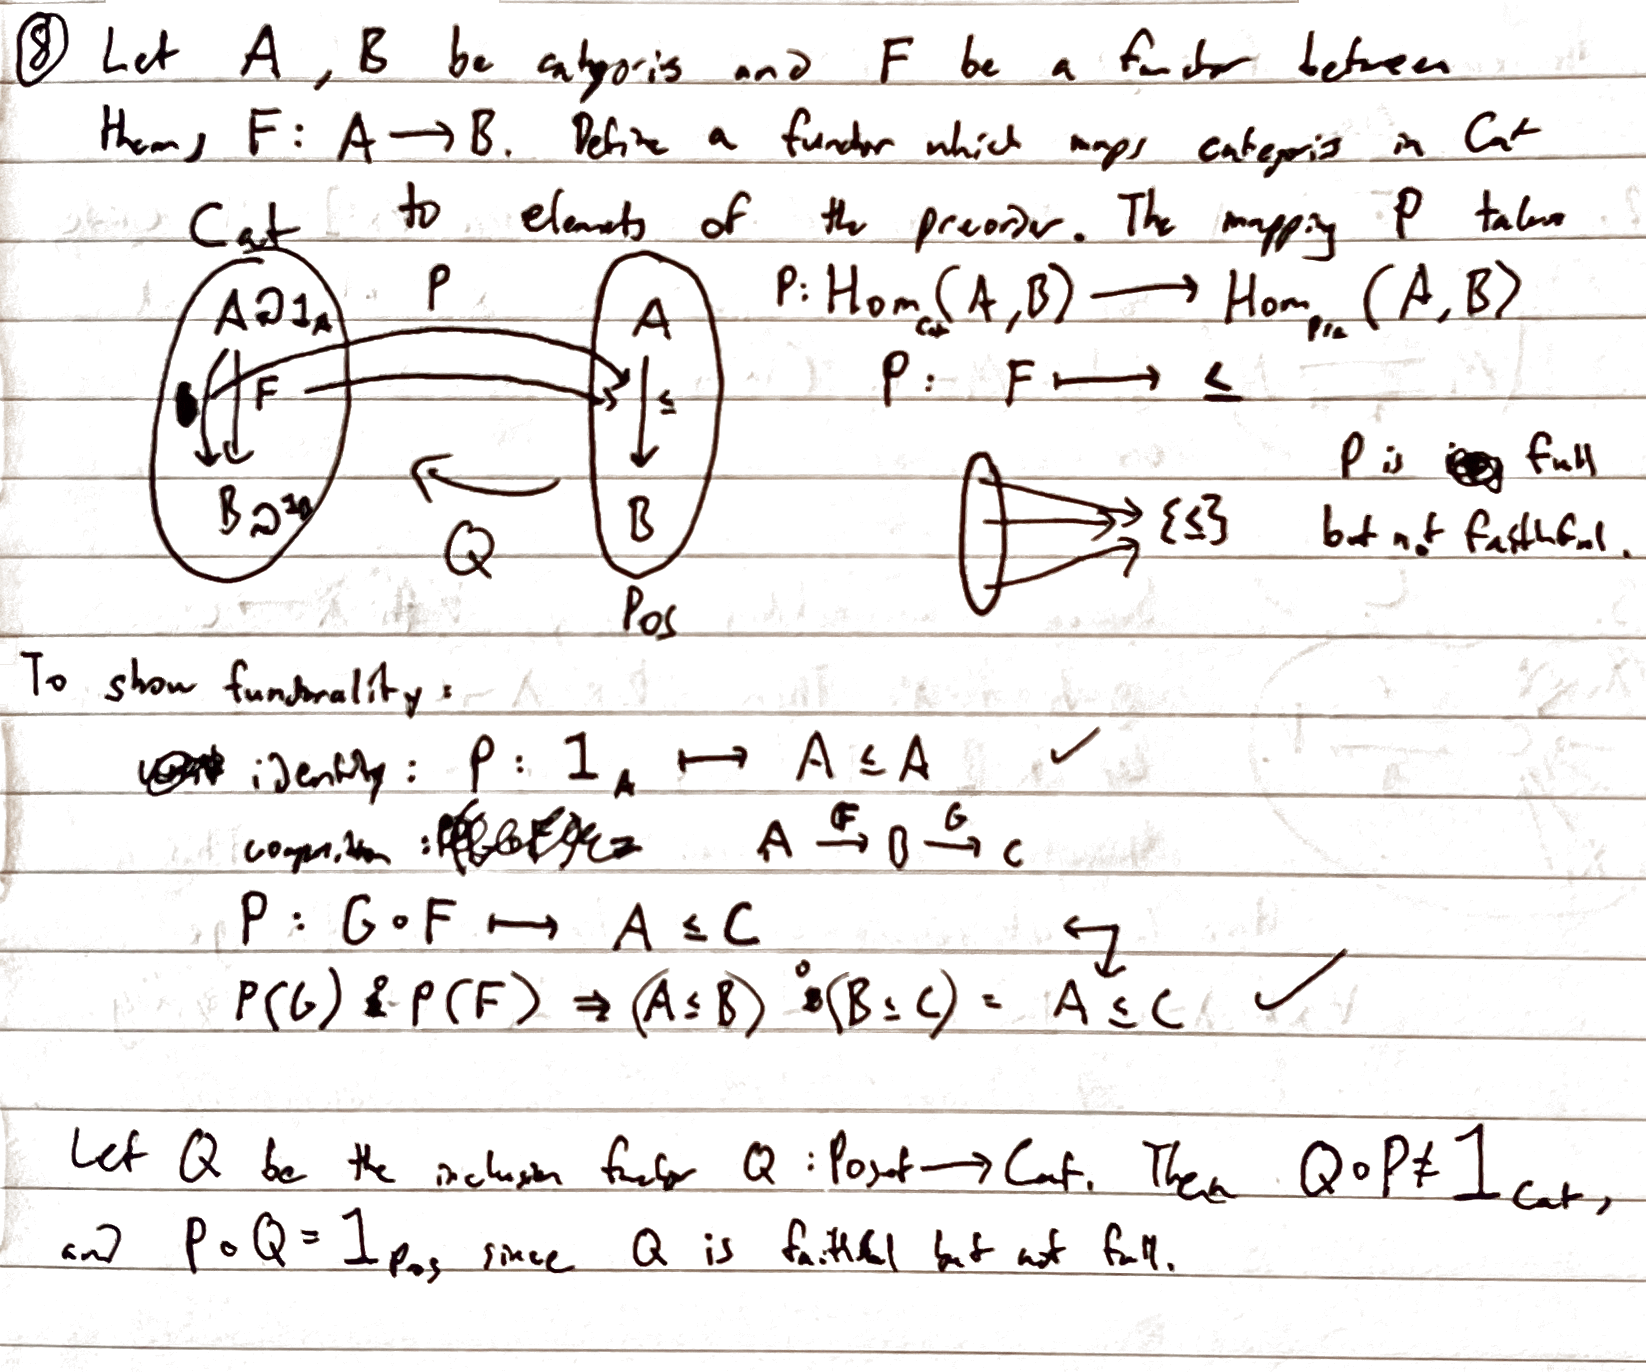 ⑧ Let A, B be categoris and F be a functor between
them, F: A → B. Define a functor which maps categoris in Cat
Cat to elements of the preorder. The mapping P takes
A ⊋ 1_A P A P: Hom_Cat(A,B) → Hom_Pre(A,B)
F ≤ P: F ↦ ≤
B 1_B Q B {≤} P is full
but not faithful.
Pos
To show functorality:
identity: P: 1_A ↦ A ≤ A ✓
composition: A →F B →G C
P: G∘F ↦ A ≤ C
P(G) P(F) ⇒ (A≤B) ∘ (B≤C) = A ≤ C ✓
Let Q be the inclusion functor Q: Poset → Cat. Then Q∘P ≠ 1_Cat,
and P∘Q = 1_Pos since Q is faithful but not full.